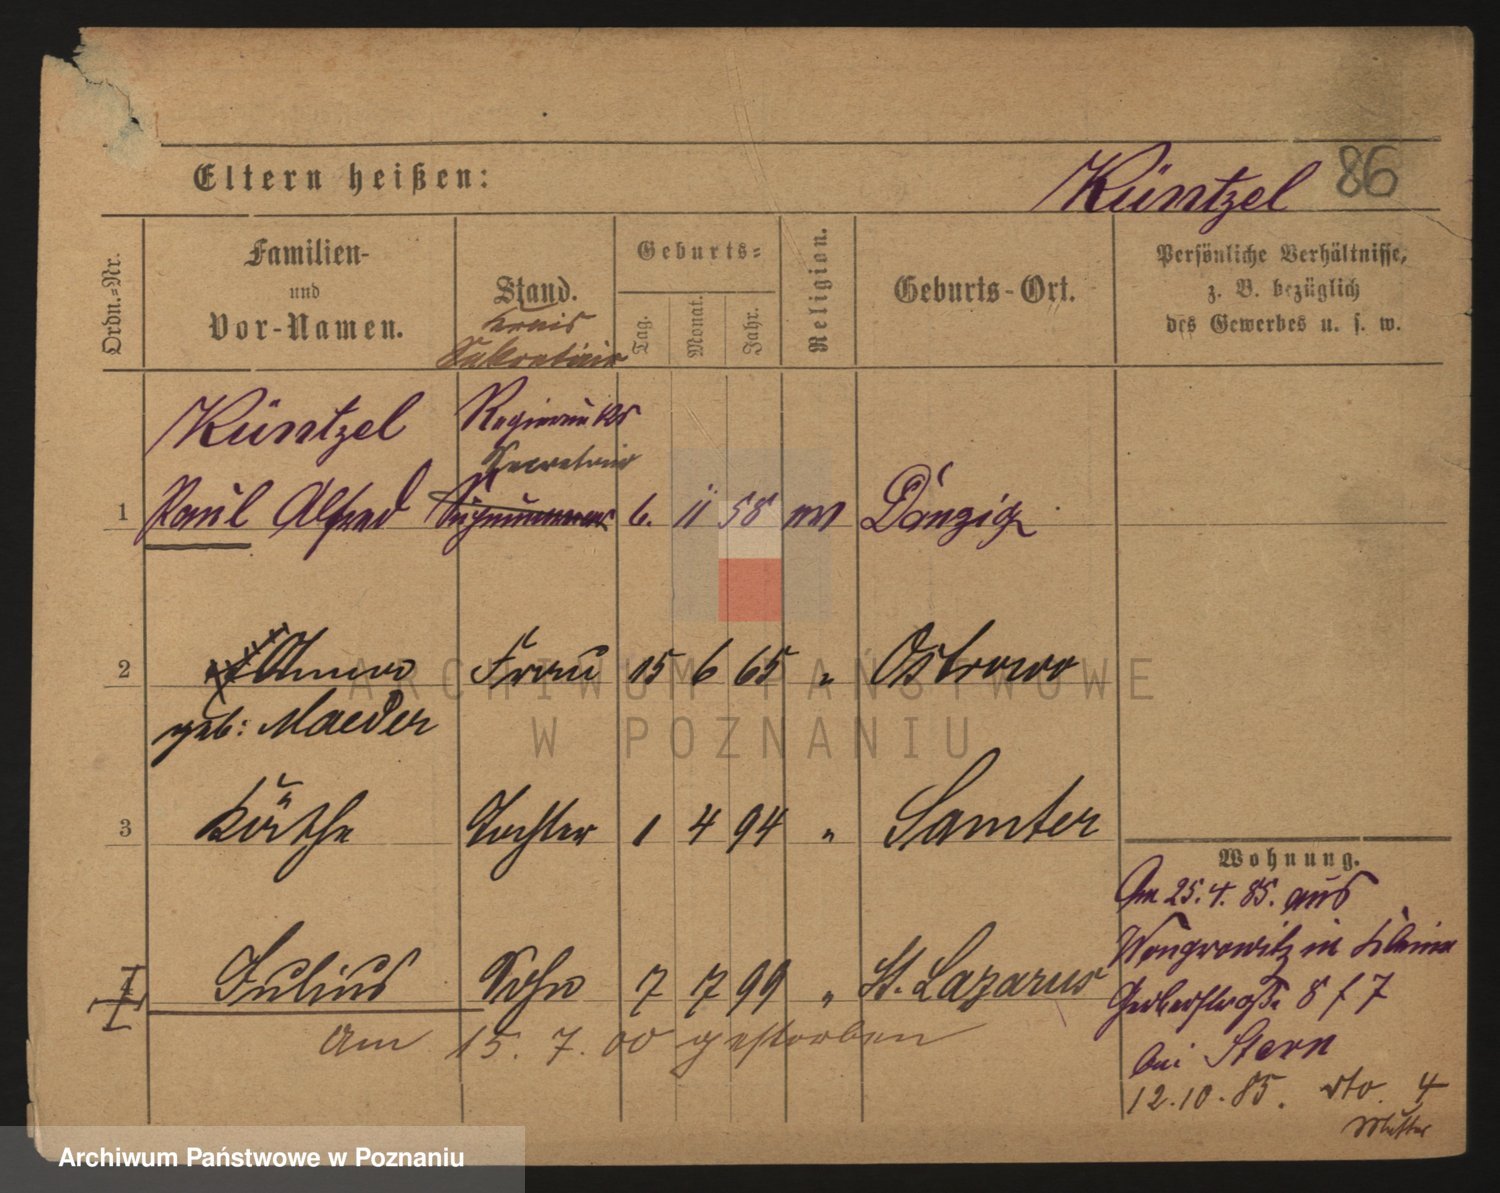 Eltern heißen:
Küntzel 86
Ordn.-Nr.
Familien-
und
Vor-Namen.
Stand.
Kreis
Sekretair
Geburts-
Tag.
Monat.
Jahr.
Religion.
Geburts-Ort.
Persönliche Verhältnisse,
z. B. bezüglich
des Gewerbes u. s. w.
Küntzel Regierungs
Secretair
1 Paul Alfred Supernumerar 6. 11 58 ev Danzig
2 Anna Frau 15 6 65 " Ostrowo
geb: Maeder
3 Käthe Tochter 1 4 94 " Samter
4 Julius Sohn 7 7 99 " St. Lazarus
Am 15. 7. 00 gestorben
Wohnung.
Am 25.4.85. aus
Wongrowitz in Kleine
Gerberstraße 8 f 7
bei Stern
12.10.85. dto. 4
Mutter
ARCHIWUM PAŃSTWOWE
W POZNANIU
Archiwum Państwowe w Poznaniu